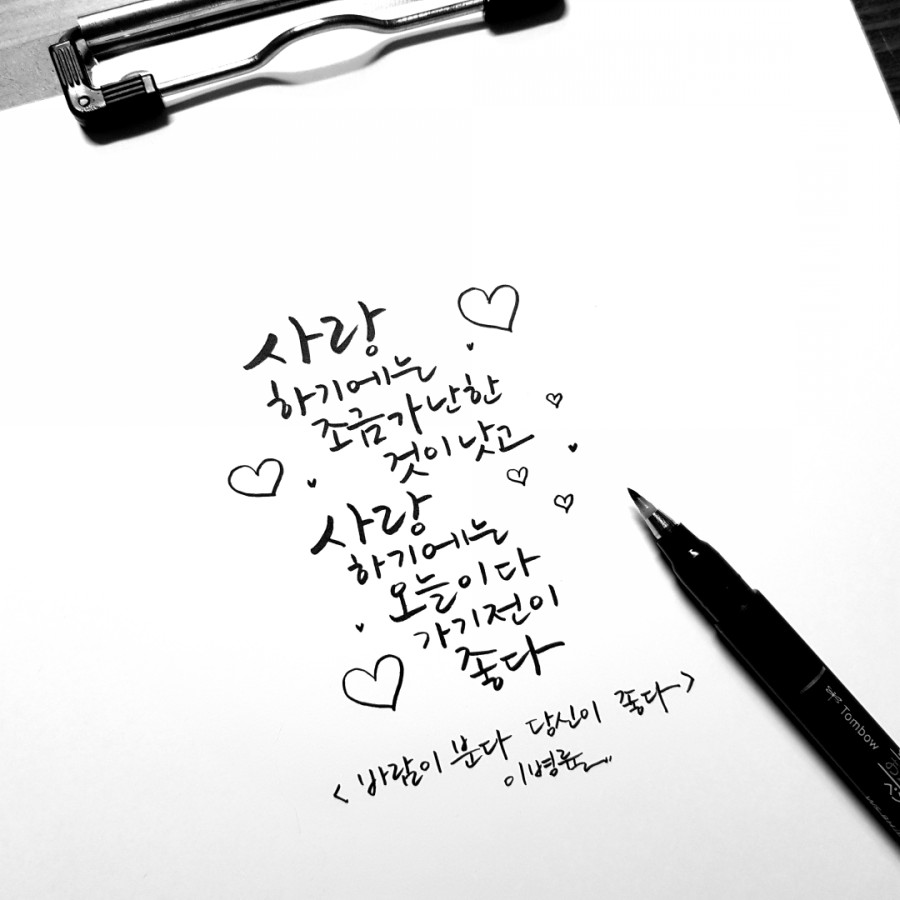 사랑
하기에는
조금가난한
것이낫고
사랑
하기에는
오늘이다
가기전이
좋다
<바람이 분다 당신이 좋다>
이병률
Tombow